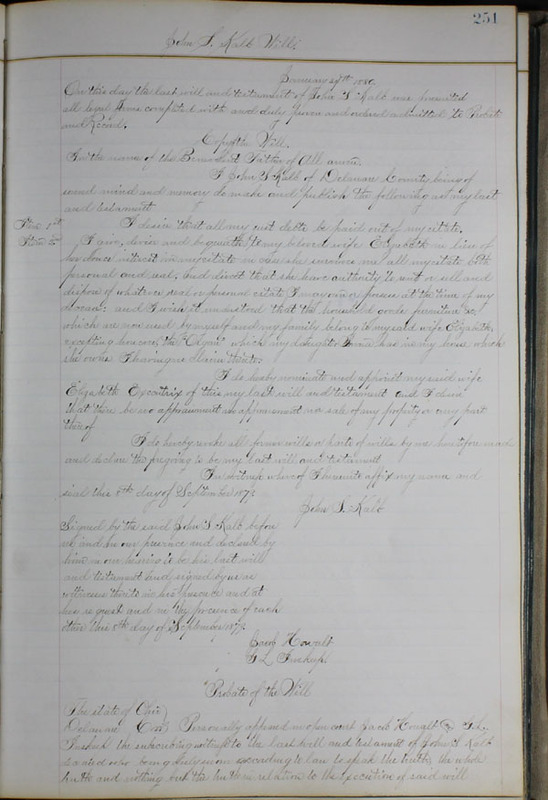 251
John S. Kalb Will
January 29th 1880.
On this day the last will and testament of John S Kalb was presented
all legal forms complied with and duly proven and ordered admitted to Probate
and Record.
Copy of the Will.
In the name of the Benevolent Father of All amen.
I John S Kalb of Delaware County being of
sound mind and memory do make and publish the following as my last
and testament
Item 1st I desire that all my just debts be paid out of my estate.
Item 2nd I give, devise and bequeath to my beloved wife Elizabeth in lieu of
her dower interest in my estate in case she survives me all my estate both
personal and real. And direct that she have authority to rent or sell and
dispose of whatever real or personal estate I may own or possess at the time of my
decease; and I wish it understood that the household goods furniture &c
which are now used by myself and my family belong to my said wife Elizabeth,
excepting however, the "Organ" which my daughter has in my house which
she owns I having no claim thereto.
I do hereby nominate and appoint my said wife
Elizabeth Executrix of this my last will and testament and I desire
that there be no appraisement and no sale of my property or any part
thereof
I do hereby revoke all former wills or parts of wills by me heretofore made
and declare the foregoing to be my last will and testament
In witness whereof I hereunto affix my name and
seal this 8th day of September 187
John S. Kalb
Signed by the said John S Kalb before
us and in our presence and declared by
him in our hearing to be his last will
and testament and signed by us as
witnesses thereto in his presence and at
his request and in the presence of each
other this 8th day of September 1879.
Jacob Howalt
Probate of the Will
The State of Ohio)
Delaware County Personally appeared in open court Jacob Howalt &
the subscribing witnesses to the last will and testament of John S Kalb
deceased who being duly sworn according to law to speak the truth, the whole
truth and nothing but the truth in relation to the execution of said will